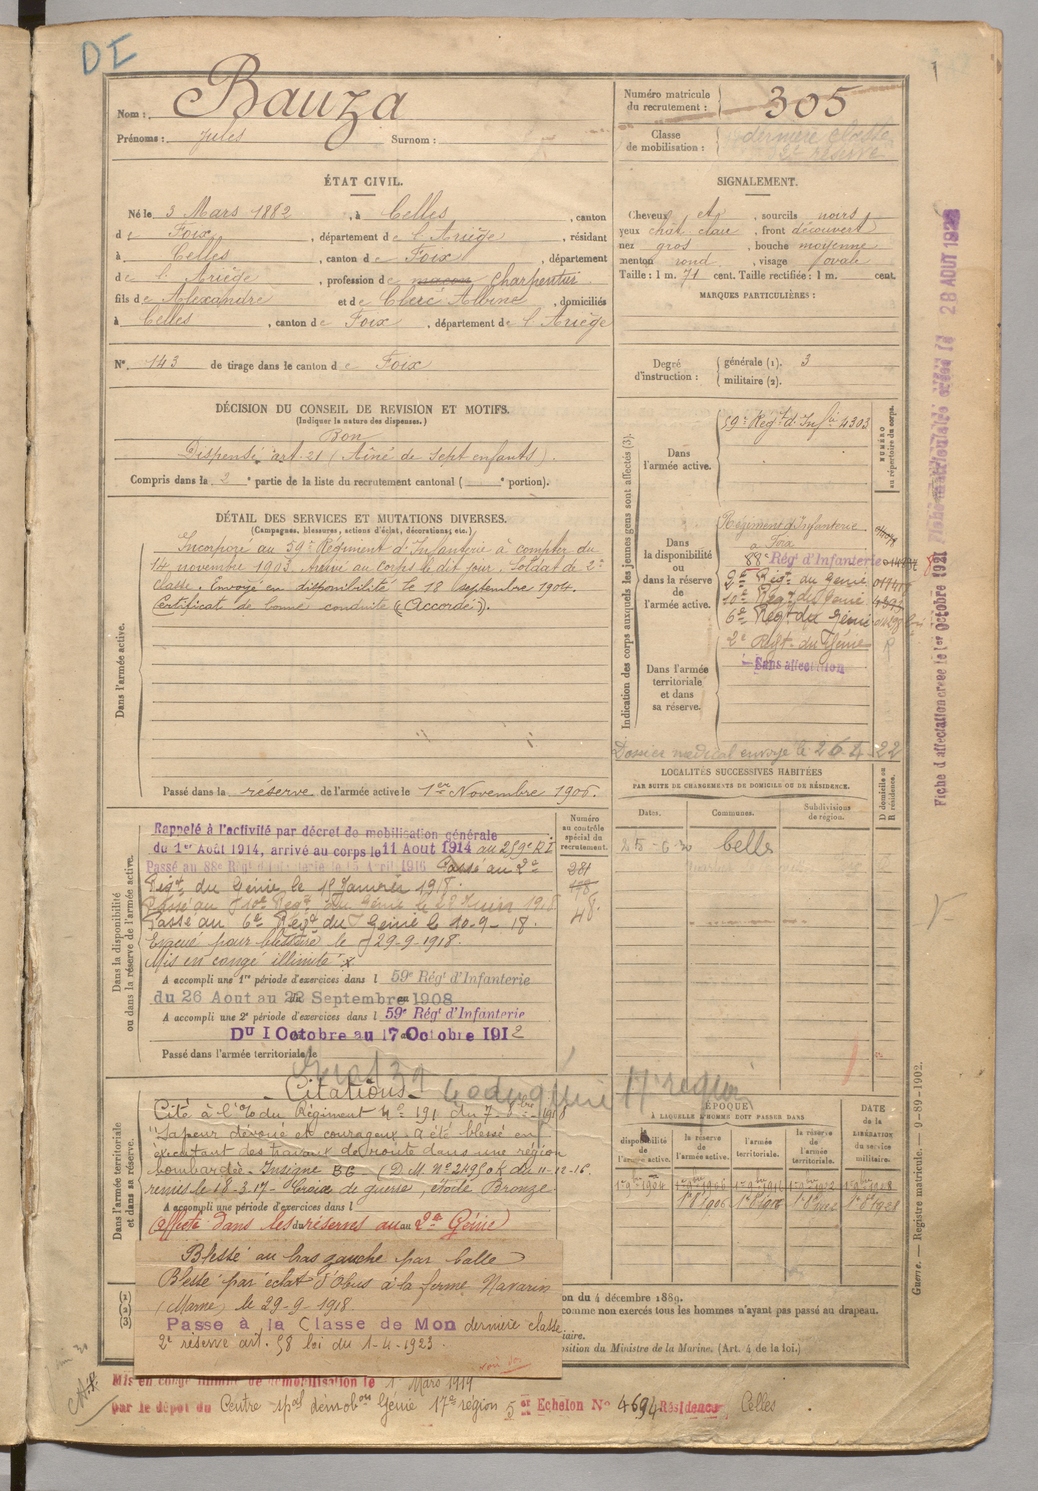 DE
Nom : Bauza
Prénoms : Jules Surnom :
Numéro matricule du recrutement : 305
Classe de mobilisation : dernière classe
2e réserve
ÉTAT CIVIL.
Né le 3 Mars 1882, à Celles, canton
de Foix, département de l'Ariège, résidant
à Celles, canton de Foix, département
de l'Ariège, profession de maçon Charpentier
fils de Alexandre et de Claré Albine, domiciliés
à Celles, canton de Foix, département de l'Ariège
N° 143 de tirage dans le canton de Foix
SIGNALEMENT.
Cheveux et, sourcils noirs
yeux chât. clair, front découvert
nez gros, bouche moyenne
menton rond, visage ovale
Taille : 1 m. 71 cent. Taille rectifiée : 1 m. cent.
MARQUES PARTICULIÈRES :
Degré d'instruction : générale (1). 3
militaire (2).
DÉCISION DU CONSEIL DE REVISION ET MOTIFS.
(Indiquer la nature des dispenses.)
Bon
Dispensé art. 21 (Aîné de Sept enfants).
Compris dans la 2e partie de la liste du recrutement cantonal ( e portion).
DÉTAIL DES SERVICES ET MUTATIONS DIVERSES.
(Campagnes, blessures, actions d'éclat, décorations, etc.)
Dans l'armée active.
Incorporé au 59e Régiment d'Infanterie à compter du
14 novembre 1903. Arrivé au corps le dit jour. Soldat de 2e
classe. Envoyé en disponibilité le 18 septembre 1904.
Certificat de bonne conduite "Accordé".
Passé dans la réserve de l'armée active le 1er Novembre 1906.
Indication des corps auxquels les jeunes gens sont affectés (3).
NUMÉRO au répertoire du corps.
Dans l'armée active.
59e Régt d'Infie 4303
Dans la disponibilité ou dans la réserve de l'armée active.
Régiment d'Infanterie
à Foix
88e Rég' d'Infanterie
2e Régt du Génie
10e Régt du Génie
6e Régt du Génie
2e Régt du Génie
Sans affectation
Dans l'armée territoriale et dans sa réserve.
Dossier médical envoyé le 26.4.22
LOCALITÉS SUCCESSIVES HABITÉES
PAR SUITE DE CHANGEMENTS DE DOMICILE OU DE RÉSIDENCE.
Dates. Communes. Subdivisions de région. D domicile ou R résidence.
25-6-30 Celles
Dans la disponibilité ou dans la réserve de l'armée active.
Numéro au contrôle spécial du recrutement.
281
198
48.
Rappelé à l'activité par décret de mobilisation générale
du 1er Août 1914, arrivé au corps le 11 Aout 1914 au 259e RI
Passé au 88e Régt d'Infanterie le 15 Avril 1916 Passé au 2e
Régt du Génie le 18 Janvier 1918.
Passé au 10e Régt du Génie le 28 Juin 1918
Passé au 6e Régt du Génie le 10-9-18.
Evacué pour blessure le 29-9-1918.
Mis en congé illimité
A accompli une 1re période d'exercices dans l 59e Rég' d'Infanterie
du 26 Aout au 22 Septembre 1908
A accompli une 2e période d'exercices dans l 59e Rég' d'Infanterie
Du 1 Octobre au 17 Octobre 1912
Passé dans l'armée territoriale le
Dans l'armée territoriale et dans sa réserve.
Citations
Cité à l'O/ du Régiment N° 191 du 7-1918
"Sapeur dévoué et courageux. a été blessé en
exécutant des travaux de route dans une région
bombardée. Insigne BG (D.M. N° 21950K du 11-12-16.
remis le 18-3-17- Croix de guerre, étoile Bronze.
A accompli une période d'exercices dans l
Affecté dans les réserves au 2e Génie
Blessé au bras gauche par balle
Blessé par éclat d'obus à la ferme Navarin
(Marne) le 29-9-1918.
Passe à la Classe de Mon dernière classe
2e réserve art. 58 loi du 1-4-1923.
ÉPOQUE
À LAQUELLE L'HOMME DOIT PASSER DANS
la disponibilité de l'armée active.
la réserve de l'armée active.
l'armée territoriale.
la réserve de l'armée territoriale.
DATE DE LA LIBÉRATION DU SERVICE MILITAIRE.
on du 4 décembre 1889.
comme non exercés tous les hommes n'ayant pas passé au drapeau.
iaire.
position du Ministre de la Marine. (Art. 4 de la loi.)
Mis en congé illimité de démobilisation le 1 Mars 1919
par le dépôt du Centre démobon Génie 17e région 5e Echelon N° 4694 Résidence Celles
Fiche d'affectation créée le 1er Octobre 1921
Fiche matriculaire créée le 28 AOUT 192
Guerre. — Registre matricule. — 9-89-1902.